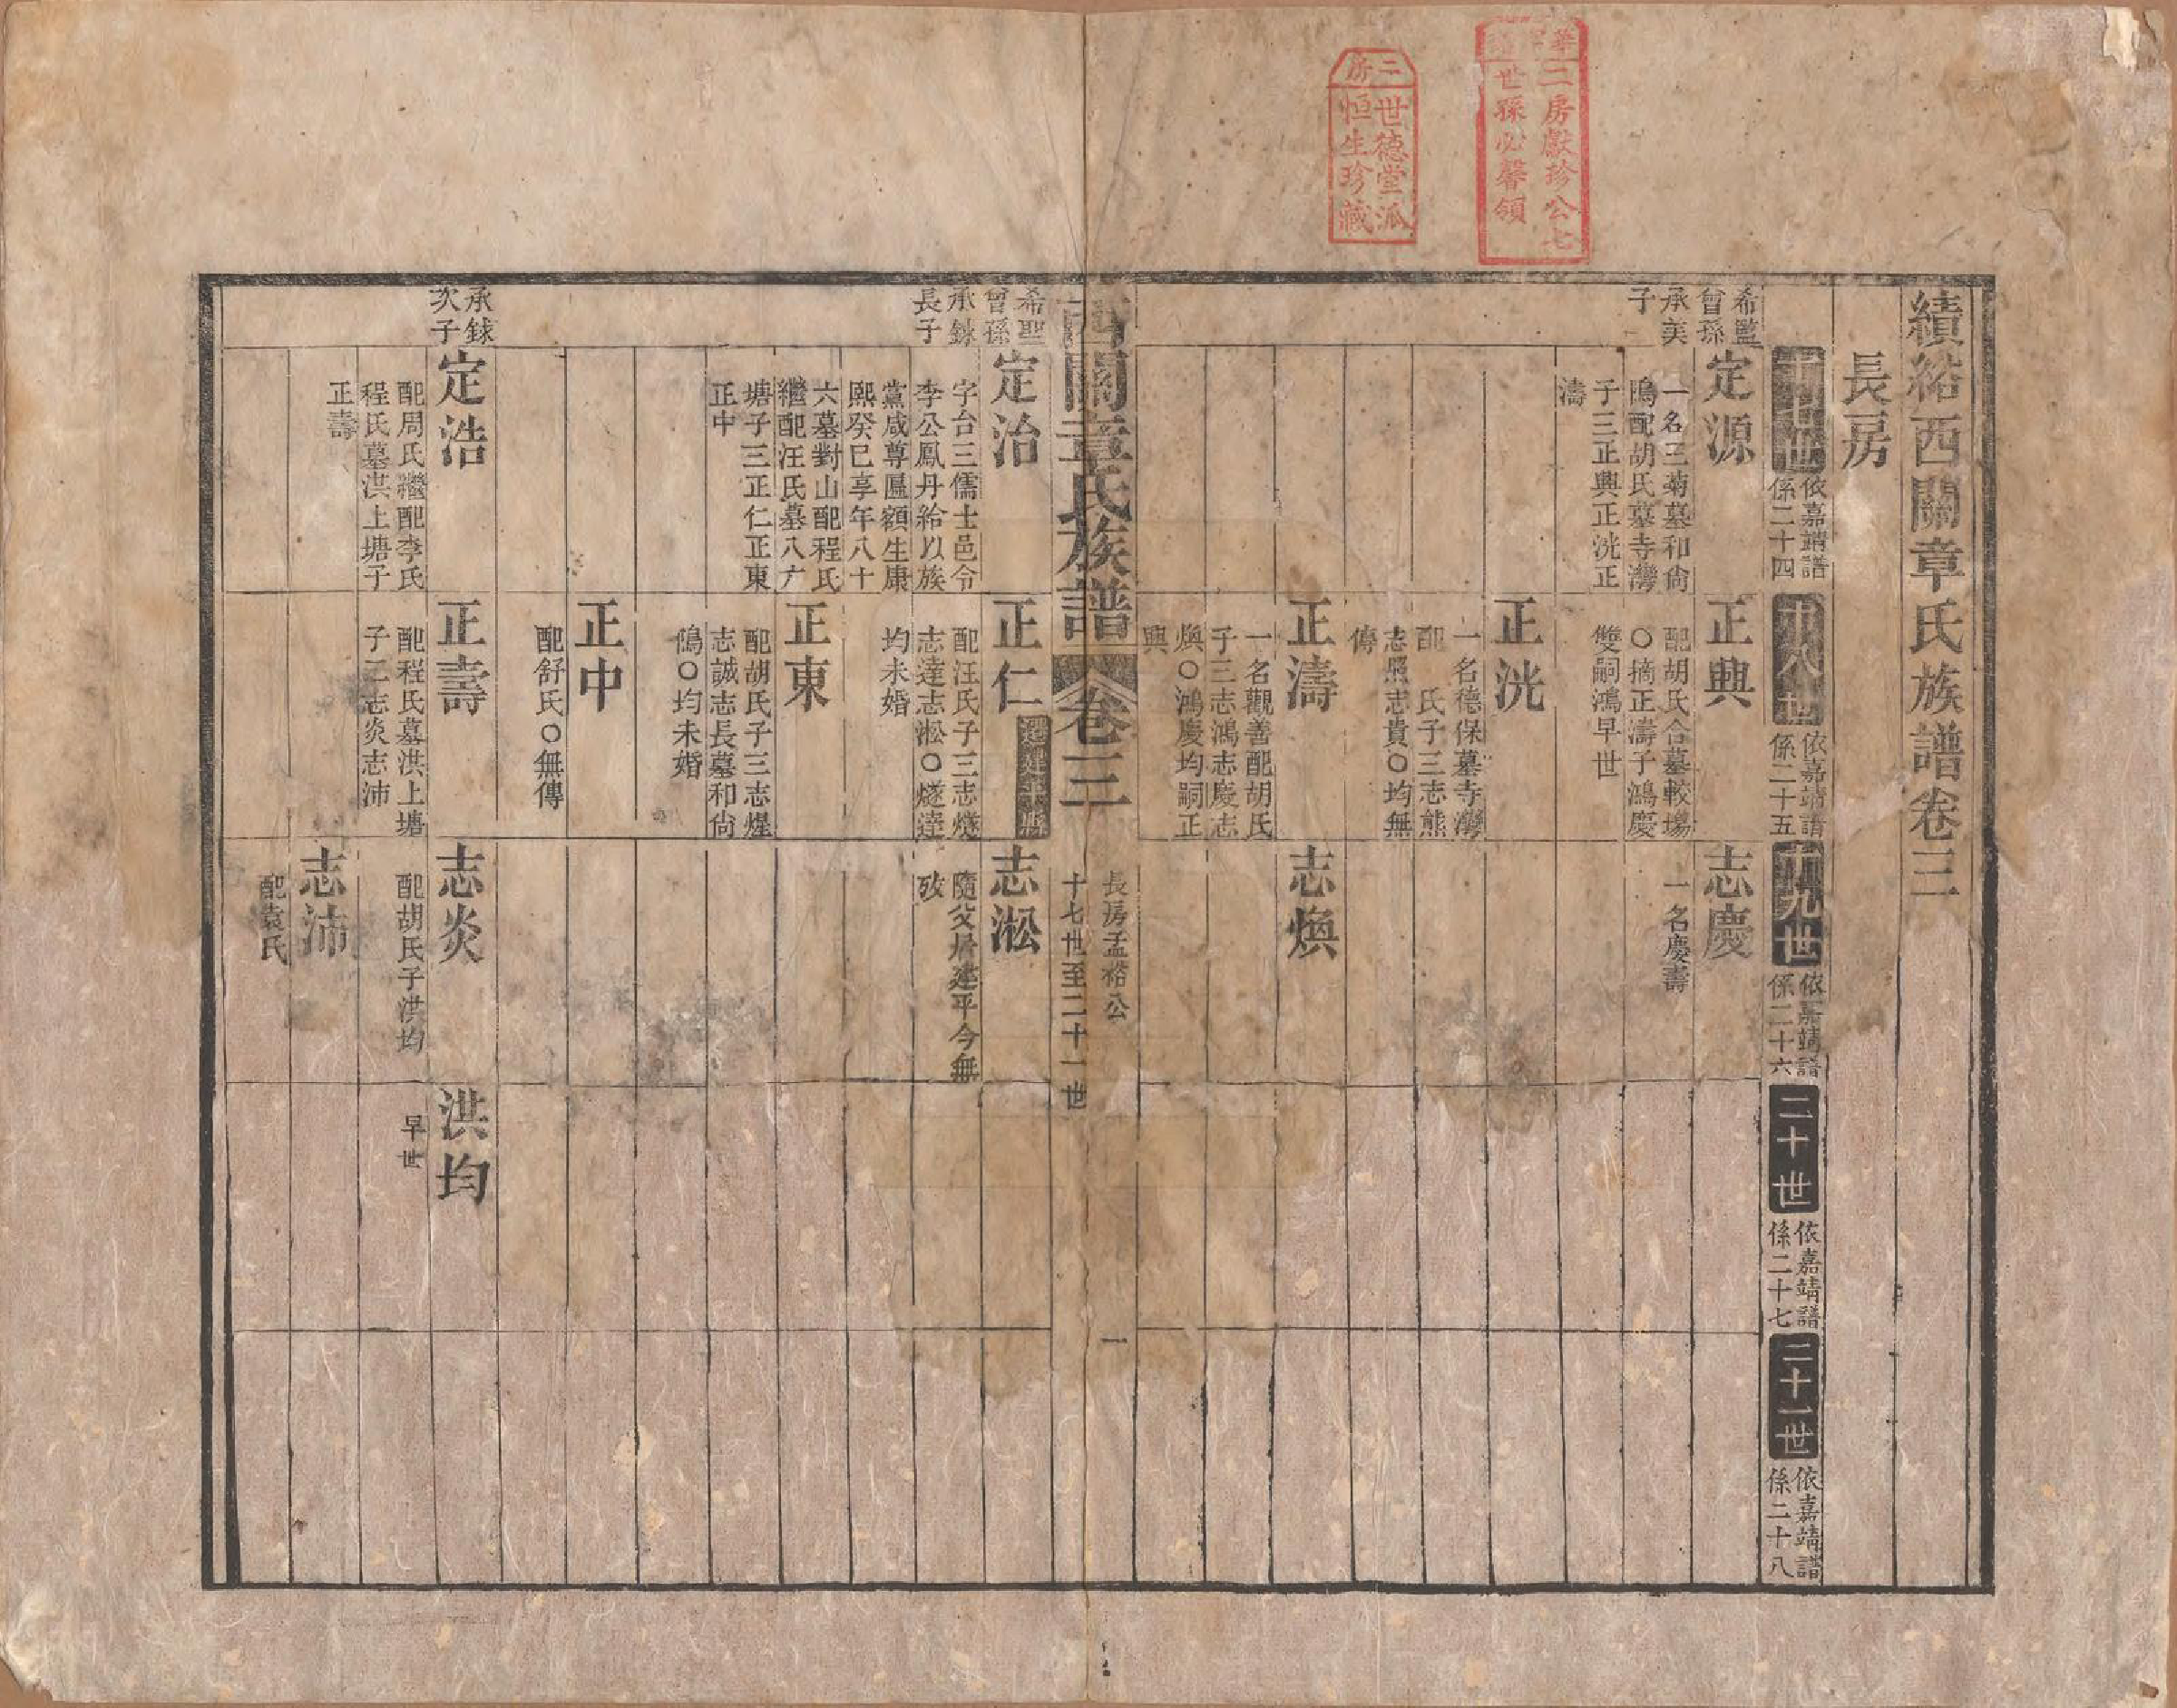 二房
世德堂派
恒生珍藏
二房獻珍公七
世孫必馨領
績谿西關章氏族譜卷三
長房
十七世
依嘉靖譜
係二十四
十八世
依嘉靖譜
係二十五
十九世
依嘉靖譜
係二十六
二十世
依嘉靖譜
係二十七
二十一世
依嘉靖譜
係二十八
希監
曾孫
承美
子
定源
一名三菊墓和尙
鴋配胡氏墓寺灣
子三正興正洸正
濤
正興
配胡氏合墓較場
○摘正濤子鴻慶
雙嗣鴻早世
志慶
一名慶壽
正洸
一名德保墓寺灣
配 氏子三志熊
志熙志貴○均無
傳
正濤
一名觀善配胡氏
子三志鴻志慶志
煥○鴻慶均嗣正
興
志煥
西關章氏族譜
卷三
長房孟裕公
十七世至二十一世
一
希聖
曾孫
承銶
長子
定治
字台三儒士邑令
李公鳳丹給以族
黨咸尊匾額生康
熙癸巳享年八十
六墓對山配程氏
繼配汪氏墓八畝
塘子三正仁正東
正中
正仁
遷建平縣
配汪氏子三志燧
志達志淞○燧達
均未婚
志淞
隨父居建平今無
攷
正東
配胡氏子三志煋
志誠志長墓和尙
鴋○均未婚
正中
配舒氏○無傳
承銶
次子
定浩
配周氏繼配李氏
程氏墓洪上塘子
正壽
正壽
配程氏墓洪上塘
子二志炎志沛
志炎
配胡氏子洪均
洪均
早世
志沛
配袁氏